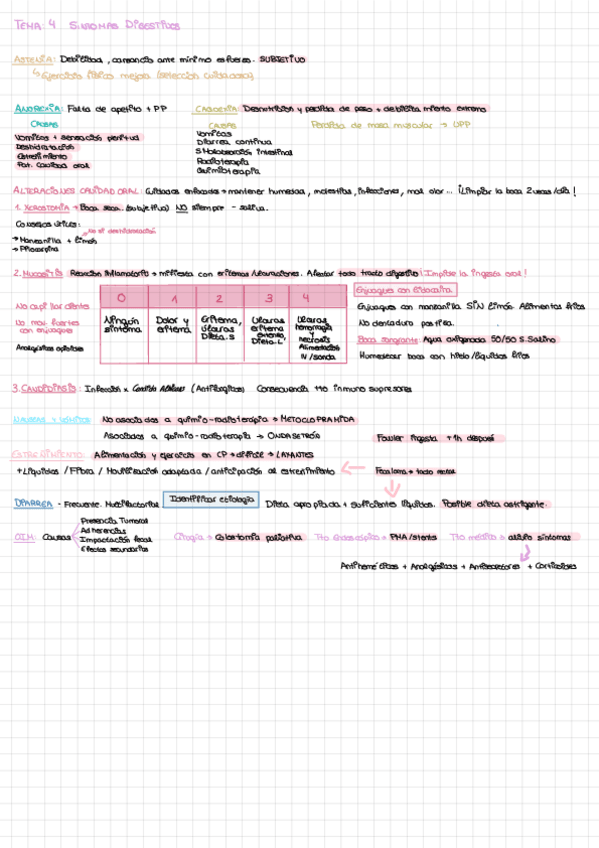 TEMA: 4 SÍNTOMAS DIGESTIVOS
ASTENIA: Debilidad, cansancio ante mínimo esfuerzo. SUBJETIVO
↳ Ejercicio físico mejora (selección cuidadosa)
ANOREXIA: Falta de apetito + PP
CAUSAS
Vómitos + sensación plenitud
Deshidratación
Estreñimiento
Pat. Cavidad oral
CAQUEXIA: Desnutrición y pérdida de peso + debilitamiento extremo
CAUSAS
Vómitos
Diarrea continua
Radioterapia
Quimioterapia
Pérdida de masa muscular → UPP
ALTERACIONES CAVIDAD ORAL: Cuidados enfocados → mantener humedad, molestias, infecciones, mal olor... ¡Limpiar la boca 2 veces/día!
1. XEROSTOMÍA → Boca seca. (subjetiva) NO siempre - saliva.
Consejos útiles:
→ Manzanilla + limón
→ Pilocarpina
2. MUCOSITIS: Reacción inflamatoria → eritemas/ulceraciones. Afectar todo tracto digestivo ¡Impide la ingesta oral!
No cepillar dientes
No mov. fuertes con enjuagues
Analgésicos opioides
0 1 2 3 4
Ningún síntoma
Dolor y eritema
Eritema, úlceras Dieta.S
Úlceras eritema extenso, Dieta.L
Úlceras hemorragia y necrosis Alimentación IV/sonda
Enjuagues con lidocaína
Enjuagues con manzanilla SIN limón. Alimentos fríos
No dentadura postiza.
Boca sangrante: Agua oxigenada 50/50 S.Salino
Humedecer boca con hielo/líquidos fríos
3. CANDIDIASIS: Infección x Candida Albicans (Antifúngicos) Consecuencia tto inmunosupresores
NÁUSEAS + VÓMITOS No asociadas a quimio-radioterapia → METOCLOPRAMIDA
Asociadas a quimio-radioterapia → ONDASETRÓN
Fowler ingesta + 1h después
ESTREÑIMIENTO Alimentación y ejercicio en CP → difícil → LAXANTES
+ Líquidos / Fibra / Movilización adaptada / anticipación al estreñimiento
Fecaloma → tacto rectal
DIARREA - Frecuente. Multifactorial
Identificar etiología
Dieta apropiada + suficientes líquidos. Posible dieta astringente.
OIM: Causas
Presencia Tumoral
Adherencias
Impactación fecal
Efectos secundarios
Cirugía → Colostomía paliativa
Tto Endoscópico → PHA/stents
Tto médico → alivio síntomas
Antiheméticos + Analgésicos + Antisecretores + Corticoides